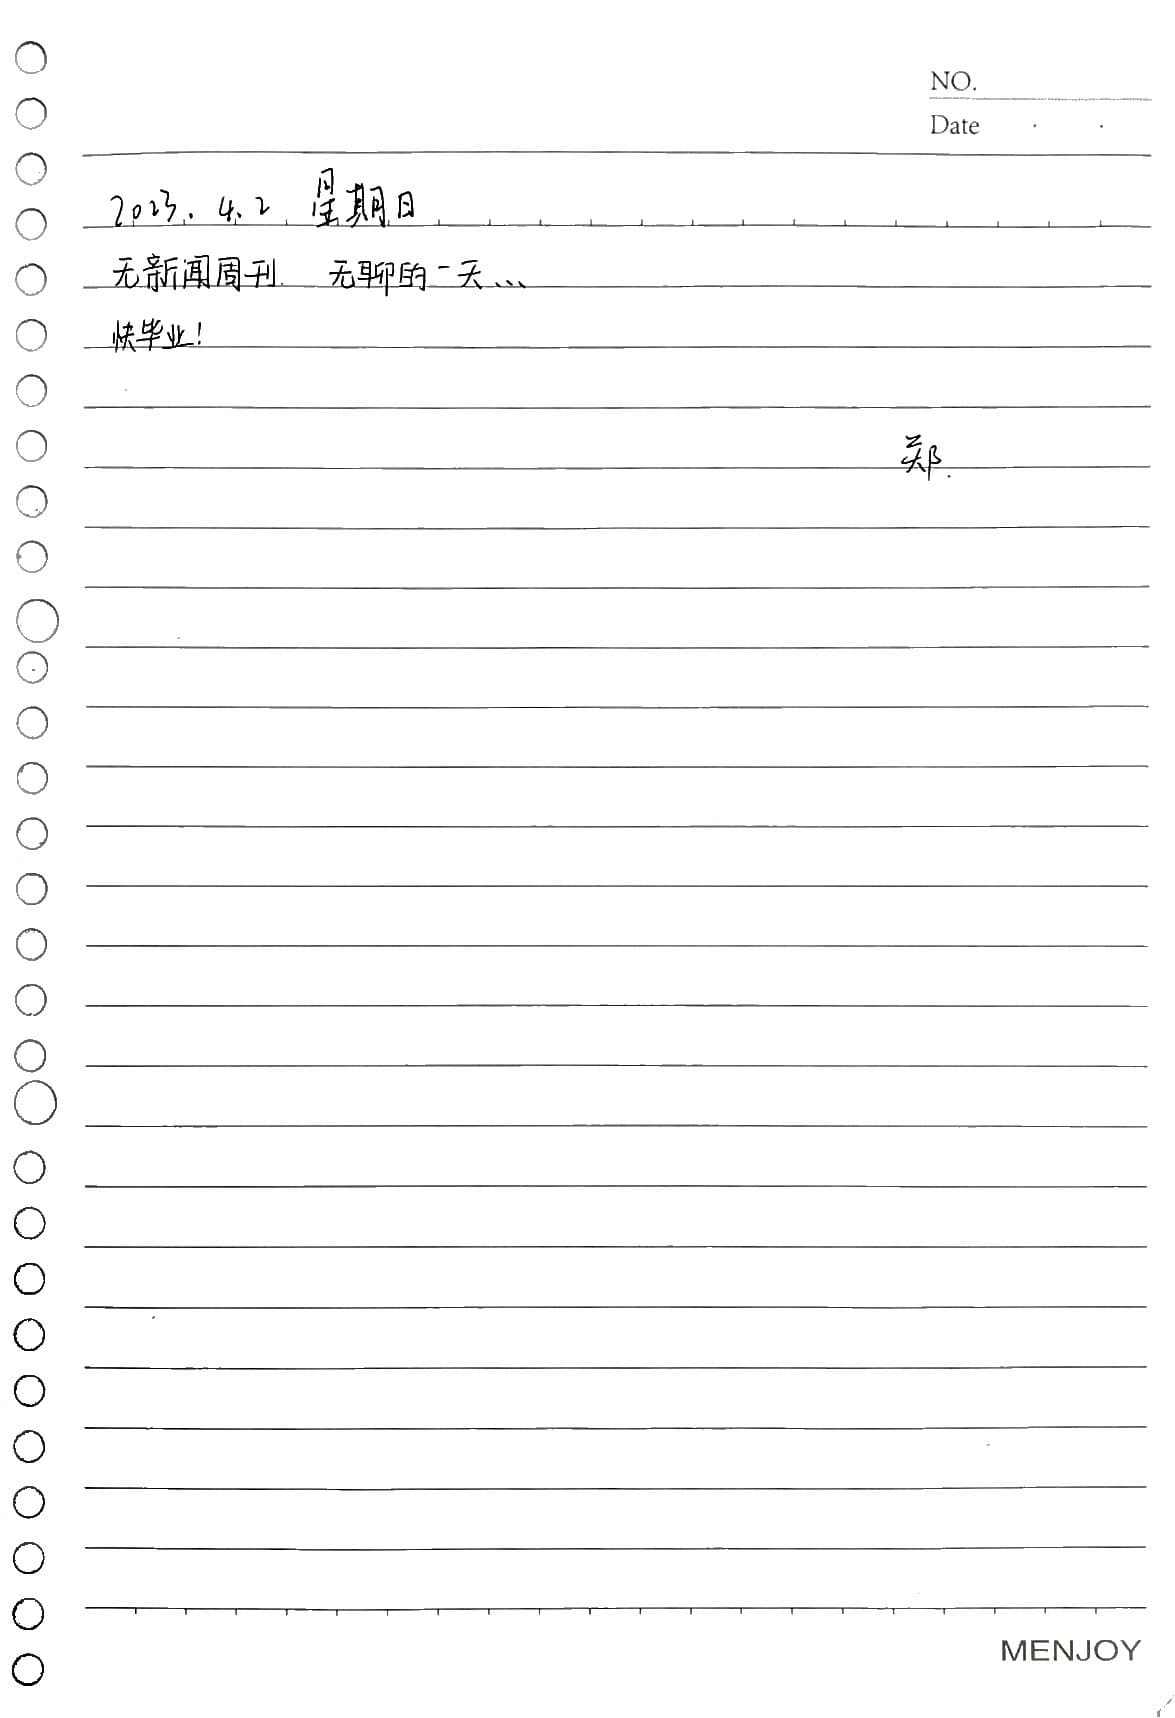 NO.
Date · ·
2023. 4. 2 星期日
无新闻周刊. 无聊的一天...
快毕业!
郑.
MENJOY